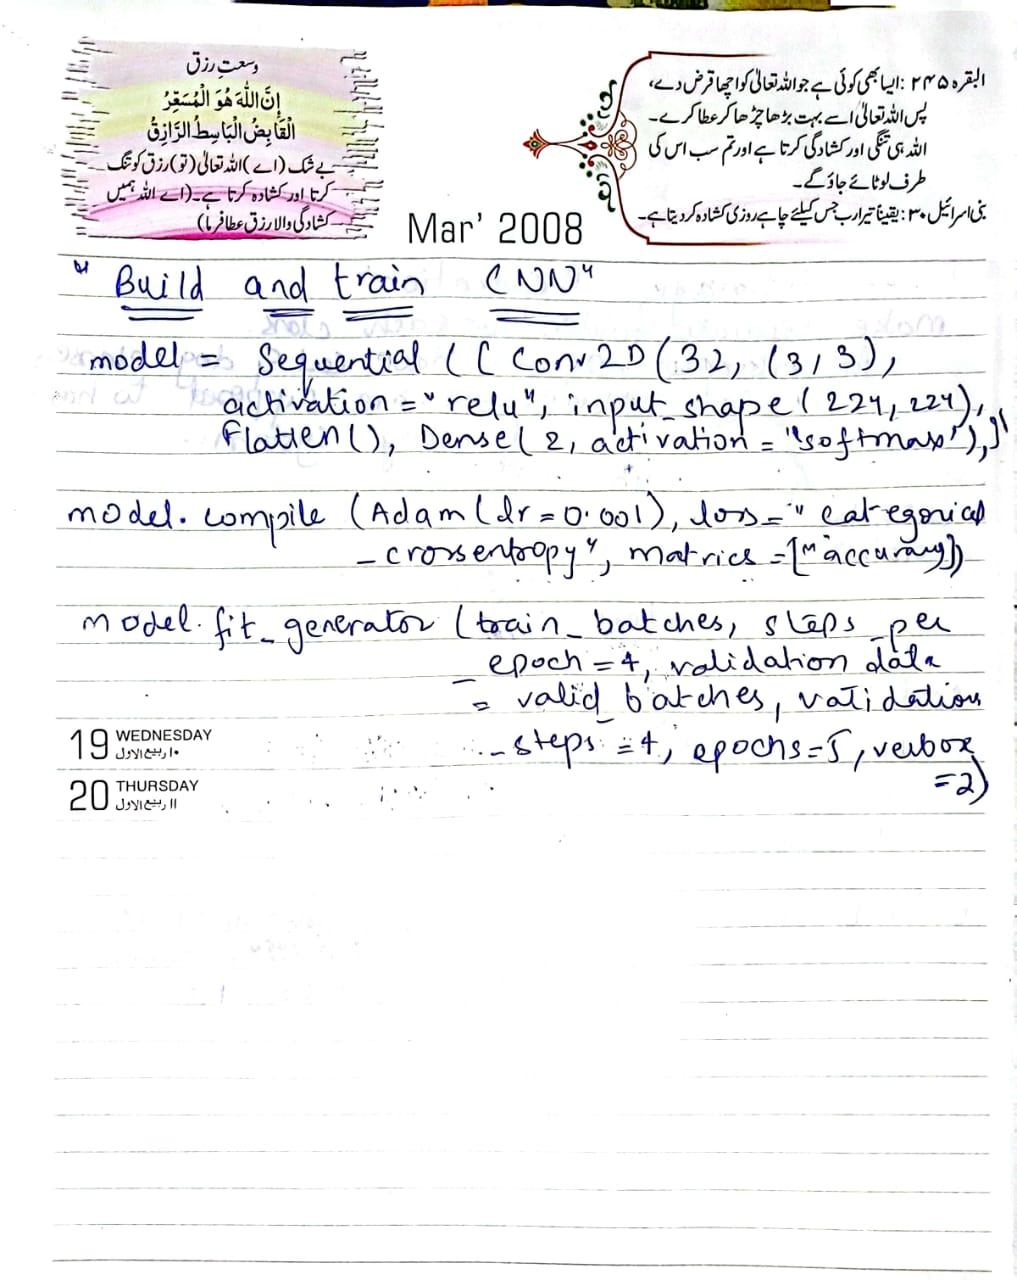 وسعتِ رزق
اِنَّ اللّٰهَ هُوَ الْمُسَعِّرُ
الْقَابِضُ الْبَاسِطُ الرَّازِقُ
بے شک (اے) اللہ تعالیٰ (تو) رزق کو تنگ
کرتا اور کشادہ کرتا ہے۔ (اے اللہ ہمیں
کشادگی والا رزق عطا فرما)
البقرہ ۲۴۵: ایسا بھی کوئی ہے جو اللہ تعالیٰ کو اچھا قرض دے،
پس اللہ تعالیٰ اسے بہت بڑھا چڑھا کر عطا کرے۔
اللہ ہی تنگی اور کشادگی کرتا ہے اور تم سب اس کی
طرف لوٹائے جاؤ گے۔
بنی اسرائیل ۳۰: یقیناً تیرا رب جس کیلئے چاہے روزی کشادہ کردیتا ہے۔
Mar' 2008
"Build and train CNN"
model = Sequential ([ Conv2D (32, (3,3),
activation = "relu", input_shape (224, 224),
Flatten(), Dense( 2, activation = "softmax"),])
model. compile (Adam (lr = 0.001), loss = " categorical
_ crossentropy", matrics = ["accuracy])
model. fit_generator (train_batches, steps_per
_ epoch = 4, validation data
= valid_batches, validation
_ steps = 4, epochs = 5, verbox
= 2)
19 WEDNESDAY
۱۰ ربیع الاول
20 THURSDAY
۱۱ ربیع الاول